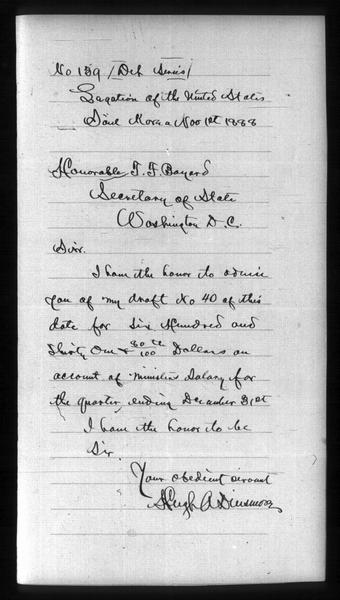 No 159 / Dch Series /
Legation of the United States
Söul Korea Nov 1st 1888
Honorable T. F. Bayard
Secretary of State
Washington D.C.
Sir.
I have the honor to advise
you of my draft No 40 of this
date for Six Hundred and
thirty One & 80/100 Dollars on
account of Ministers Salary for
the quarter, ending December 31st
I have the honor to be
Sir.
Your obedient servant
Hugh A Dinsmore